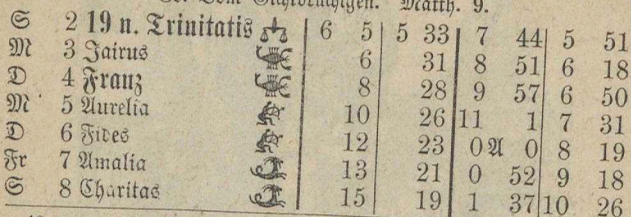 Matth. 9.
S 2 19 n. Trinitatis 6 5 5 33 7 44 5 51
M 3 Jairus 6 31 8 51 6 18
D 4 Franz 8 28 9 57 6 50
M 5 Aurelia 10 26 11 1 7 31
D 6 Fides 12 23 0 A 0 8 19
Fr 7 Amalia 13 21 0 52 9 18
S 8 Charitas 15 19 1 37 10 26